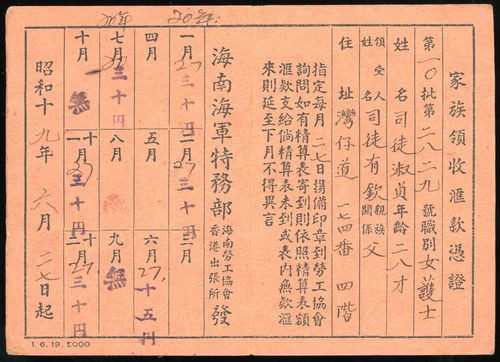 家族領收滙款憑證
第一〇批第二八二九號職別女護士
姓名司徒淑貞年齡二八才
領受人姓名司徒有欽親族關係父
住址灣仔道一七四番四階
指定每月二七日携備印章到勞工協會
詢問如有精算表寄到則依照精算表額
滙欵支給倘精算表未到或表內無欵滙
來則延至下月不得異言
海南海軍特務部發
海南勞工協會
香港出張所
20年
一月 27 三十円
二月 27 三十円
三月
四月
五月
六月 27 十五円
七月 三十円
八月
九月 無
十月 無
十一月 三十円
十二月 27 三十円
昭和十九年六月二七日起
1.6.19.5000